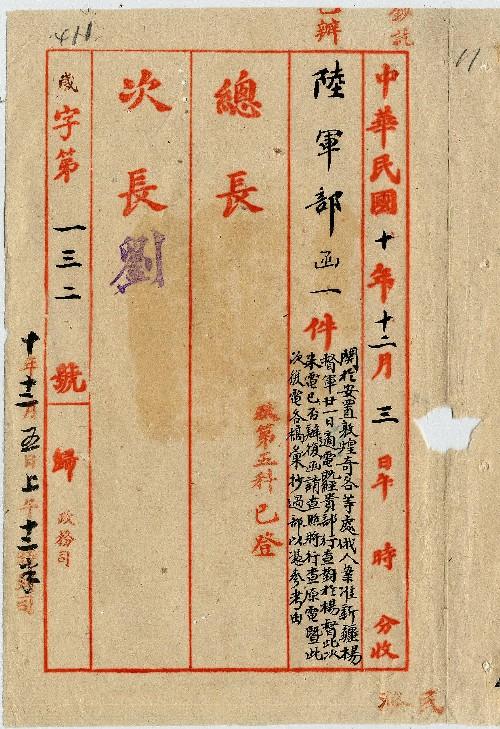 中華民國十年十二月三日午 時 分收
陸軍部函一件
關於安置敦煌奇台等處俄人案准新疆楊
督軍廿一日通電既經貴部行查
來電已否辦復函請查照將行查原電暨此
次復電各稿彙抄過部以憑參考由
第五科 已登
總長
次長 劉
字第一三二號 歸 政務司
十年十二月五日上午十二
已辦
411
11